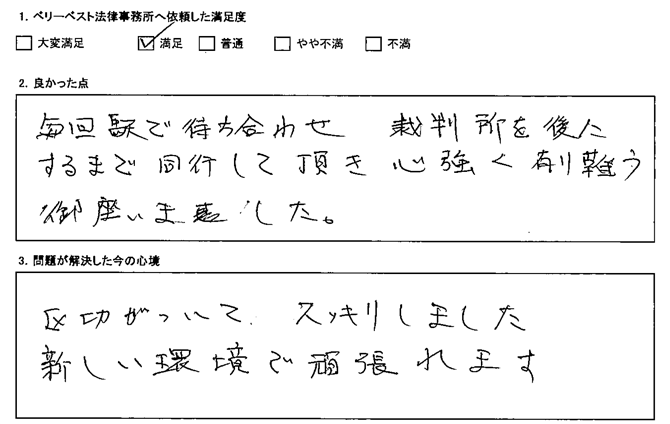 1. ベリーベスト法律事務所へ依頼した満足度
□ 大変満足 ☑ 満足 □ 普通 □ やや不満 □ 不満
2. 良かった点
毎回駅で待ち合わせ 裁判所を後に
するまで同行して頂き心強く有難う
御座いました。
3. 問題が解決した今の心境
区切がついて、スッキリしました
新しい環境で頑張れます